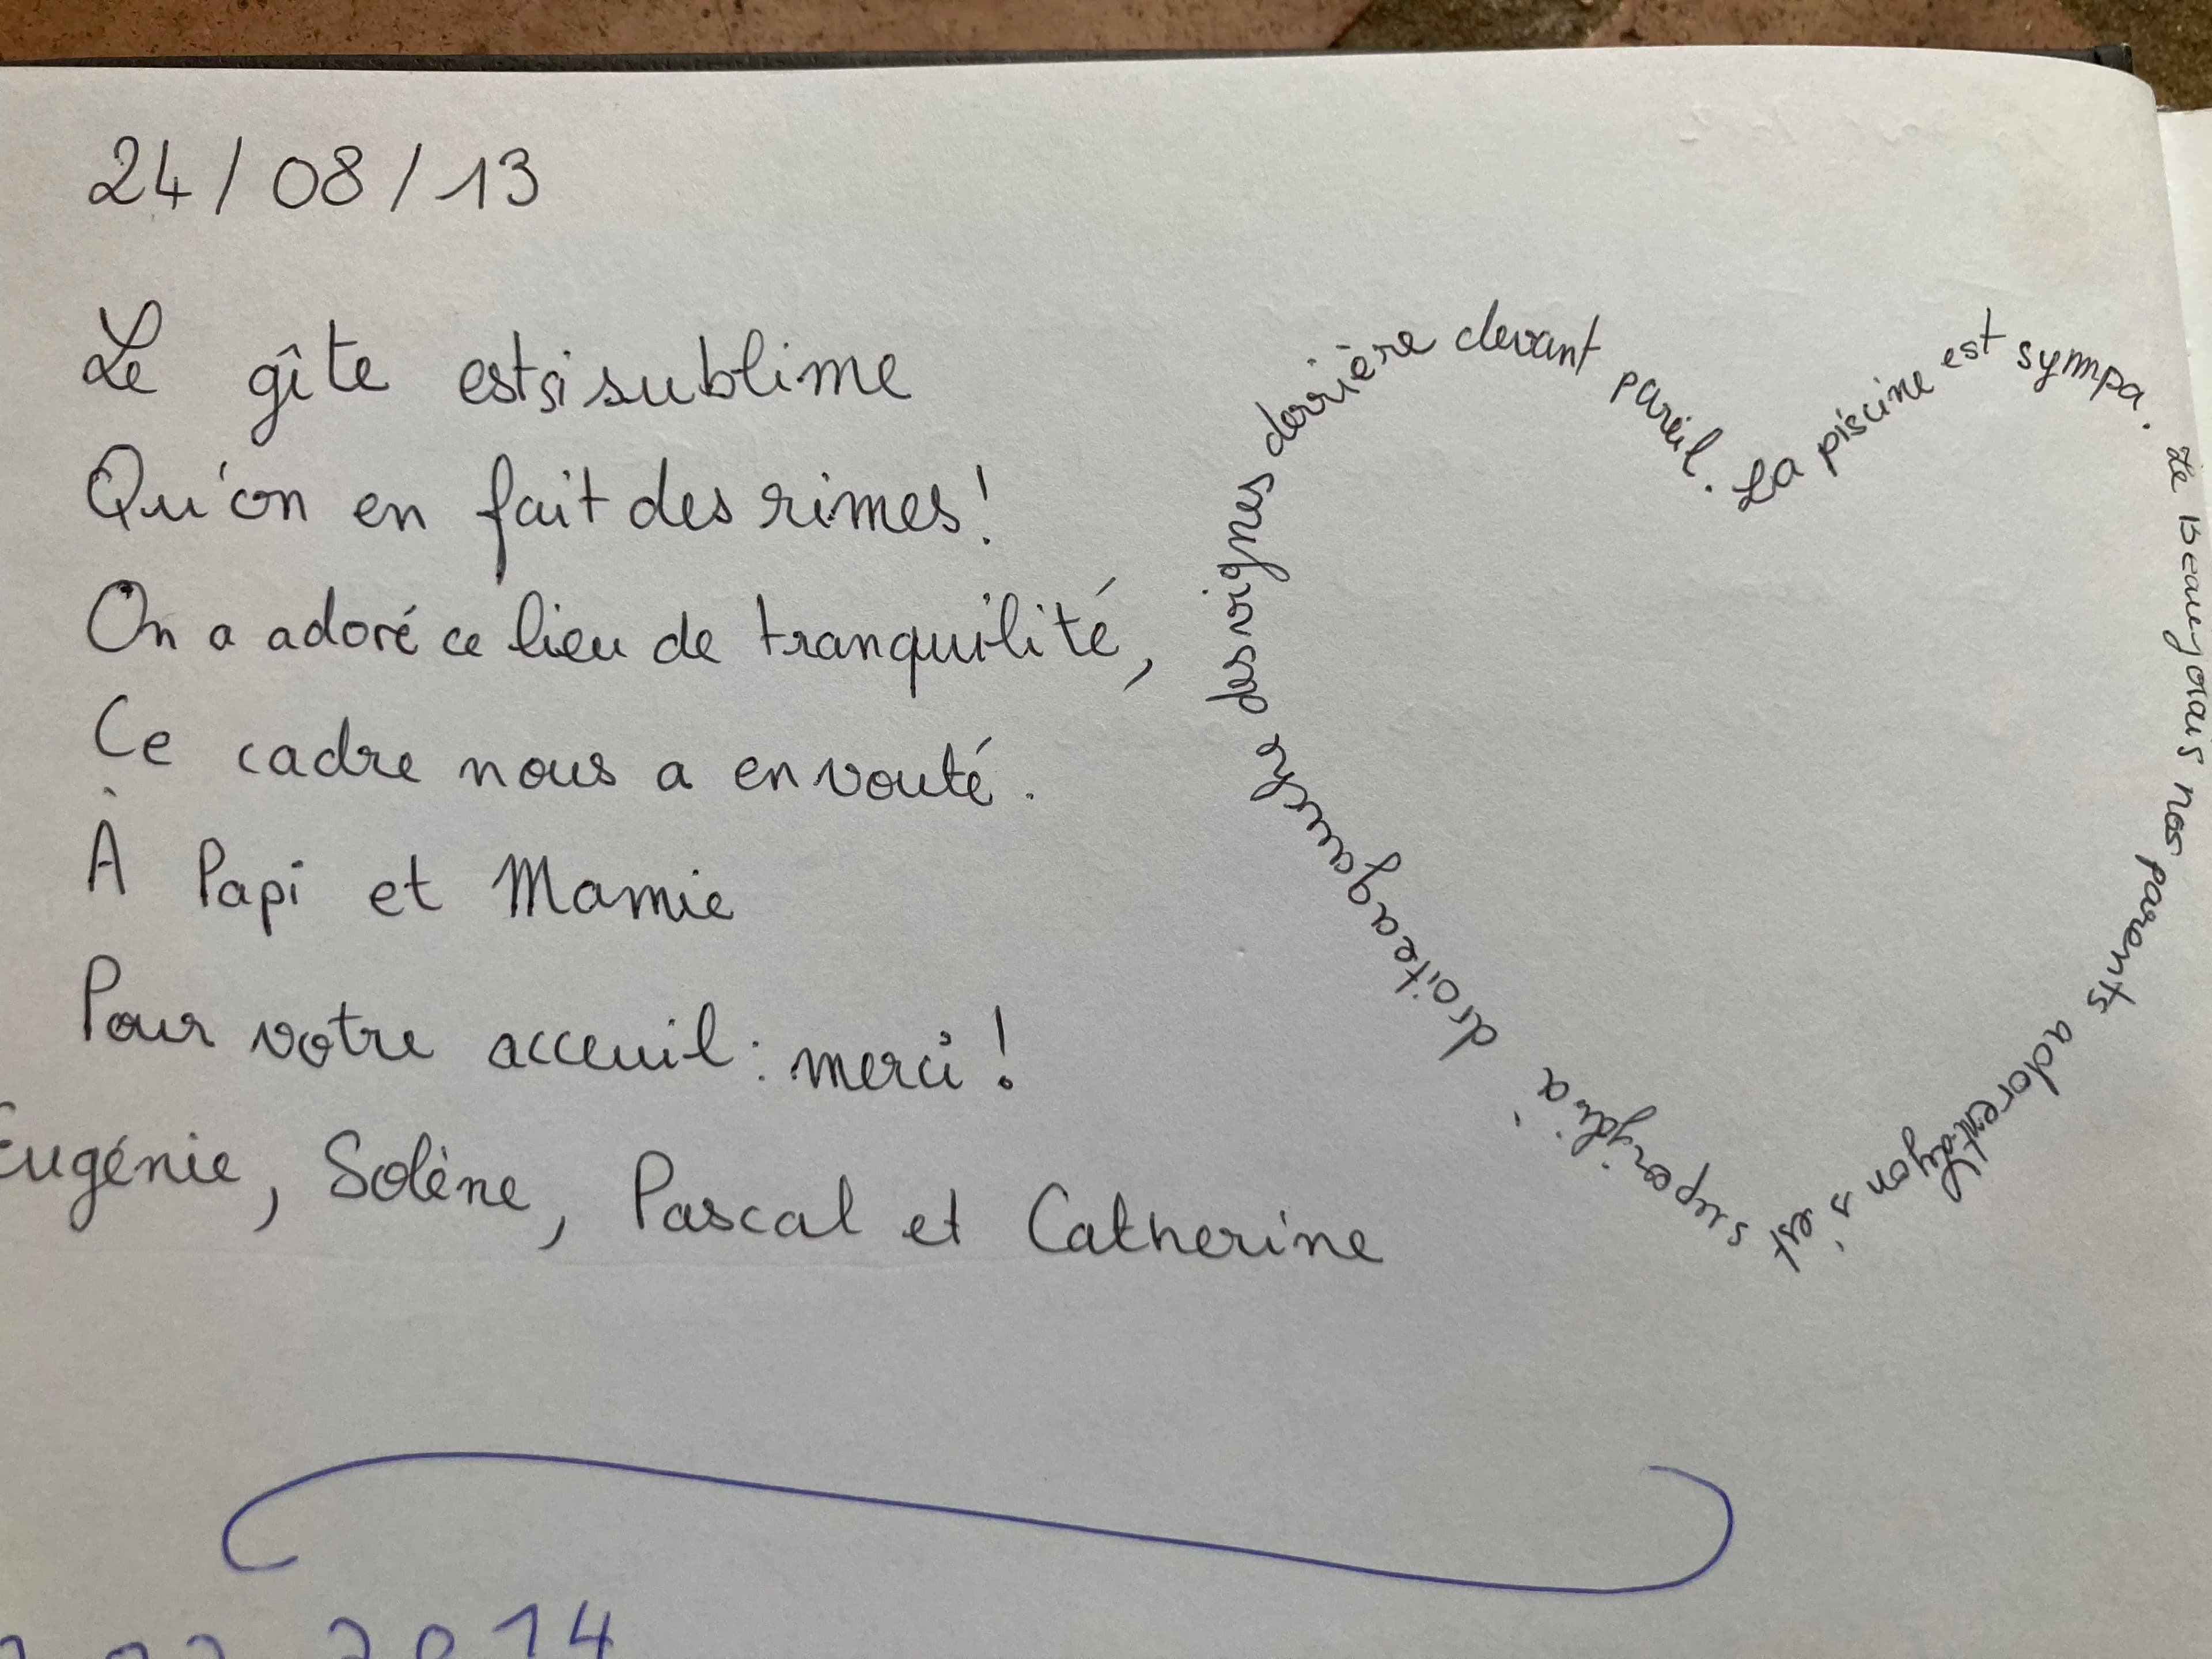 24/08/13
Le gîte est si sublime
Qu'on en fait des rimes!
On a adoré ce lieu de tranquilité,
Ce cadre nous a envouté.
À Papi et Mamie
Pour votre acceuil : merci!
Eugénie, Solène, Pascal et Catherine
à droite a gauche des vignes derrière devant pareil. La piscine est sympa. Le Beaujolais nos parents adorent Lyon s'est super
2014